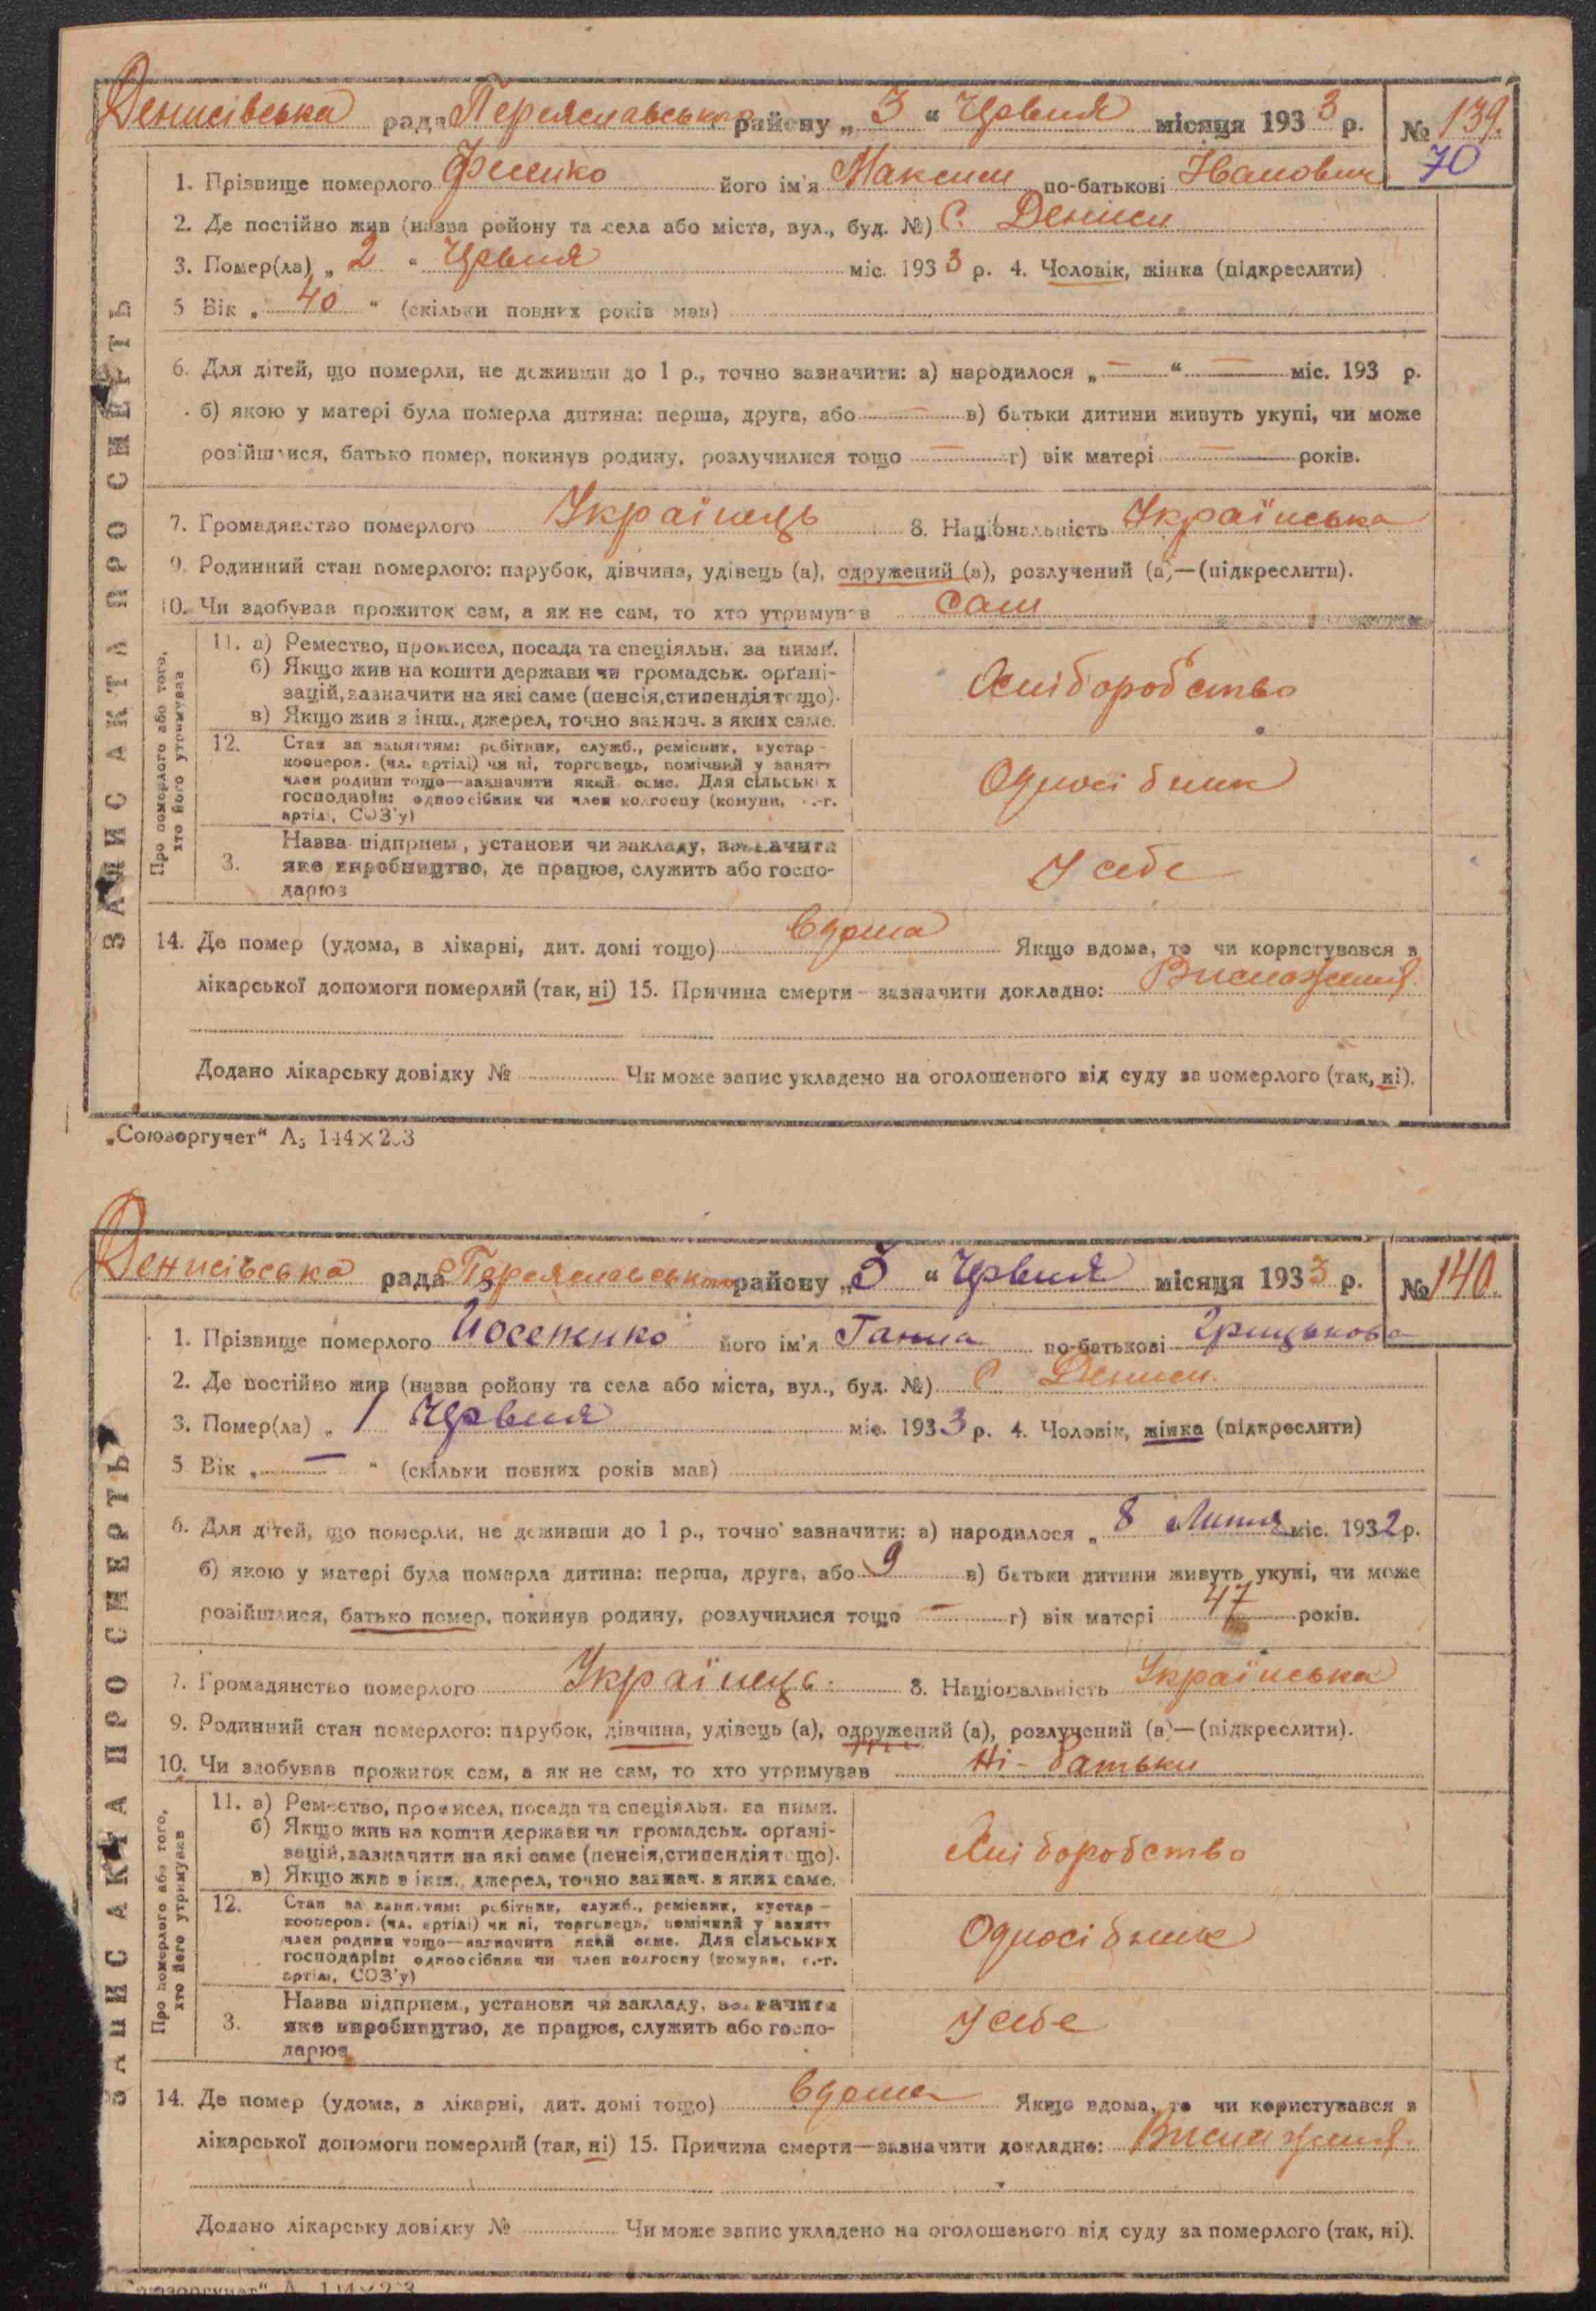 Денисівська рада Переяславського району „ 3 “ Червня місяця 1933 р. № 139.
70
1. Прізвище померлого його ім'я Максим по-батькові Іванович
2. Де постійно жив (назва ройону та села або міста, вул., буд. №) С. Дениси
3. Помер(ла) „ 2 “ Червня міс. 1933 р. 4. Чоловік, жінка (підкреслити)
5 Вік „ 40 “ (скільки повних років мав)
6. Для дітей, що померли, не доживши до 1 р., точно зазначити: а) народилося „ — “ — міс. 193 р.
б) якою у матері була померла дитина: перша, друга, або — в) батьки дитини живуть укупі, чи може
розійшлися, батько помер, покинув родину, розлучилися тощо — г) вік матері — років.
7. Громадянство померлого Українець 8. Національність Українська
9. Родинний стан померлого: парубок, дівчина, удівець (а), одружений (а), розлучений (а)—(підкреслити).
10. Чи здобував прожиток сам, а як не сам, то хто утримував Сам
11. а) Ремество, промисел, посада та спеціяльн. за ними.
б) Якщо жив на кошти держави чи громадськ. орґані-
зацій, зазначити на які саме (пенсія, стипендія тощо).
в) Якщо жив з інш., джерел, точно зазнач. з яких саме.
Хліборобство
12. Стан за заняттям: робітник, служб., ремісник, кустар —
кооперов. (чл. артілі) чи ні, торговець, помічний у занятт
член родини тощо—зазначити який саме. Для сільських
господарів: одноосібник чи член колгоспу (комуни, с.-г.
артілі, СОЗ'у)
Односібник
3. Назва підприєм., установи чи закладу, зазначити
яке виробництво, де працює, служить або госпо-
дарює
У себе
Про померлого або того,
хто його утримував
14. Де помер (удома, в лікарні, дит. домі тощо) вдома Якщо вдома, то чи користувався з
лікарської допомоги померлий (так, ні) 15. Причина смерти—зазначити докладно: Виснаження.
Додано лікарську довідку № Чи може запис укладено на оголошеного від суду за померлого (так, ні).
ЗАПИС АКТА ПРО СМЕРТЬ
„Союзоргучет“ А5 144×203
Денисівська рада Переяславського району „ 3 “ Червня місяця 1933 р. № 140.
1. Прізвище померлого Йосеженко його ім'я Ганна по-батькові Грицькова
2. Де постійно жив (назва ройону та села або міста, вул., буд. №) С Дениси.
3. Помер(ла) „ 1 Червня міс. 1933 р. 4. Чоловік, жінка (підкреслити)
5 Вік „ — “ (скільки повних років мав)
6. Для дітей, що померли, не доживши до 1 р., точно зазначити: а) народилося „ 8 Липня міс. 1932 р.
б) якою у матері була померла дитина: перша, друга, або 9 в) батьки дитини живуть укупі, чи може
розійшлися, батько помер, покинув родину, розлучилися тощо — г) вік матері 47 років.
7. Громадянство померлого Українець. 8. Національність Українська
9. Родинний стан померлого: парубок, дівчина, удівець (а), одружений (а), розлучений (а)—(підкреслити).
10. Чи здобував прожиток сам, а як не сам, то хто утримував Ні - батьки
11. а) Ремество, промисел, посада та спеціяльн. за ними.
б) Якщо жив на кошти держави чи громадськ. орґані-
зацій, зазначити на які саме (пенсія, стипендія тощо).
в) Якщо жив з інш., джерел, точно зазнач. з яких саме.
Хліборобство
12. Стан за заняттям: робітник, служб., ремісник, кустар —
кооперов. (чл. артілі) чи ні, торговець, помічний у занятт
член родини тощо—зазначити який саме. Для сільських
господарів: одноосібник чи член колгоспу (комуни, с.-г.
артілі, СОЗ'у)
Односібник
3. Назва підприєм., установи чи закладу, зазначити
яке виробництво, де працює, служить або госпо-
дарює
У себе
Про померлого або того,
хто його утримував
14. Де помер (удома, в лікарні, дит. домі тощо) вдома Якщо вдома, то чи користувався з
лікарської допомоги померлий (так, ні) 15. Причина смерти—зазначити докладно: Виснаження.
Додано лікарську довідку № Чи може запис укладено на оголошеного від суду за померлого (так, ні).
ЗАПИС АКТА ПРО СМЕРТЬ
Союзоргучет“ А 144×203